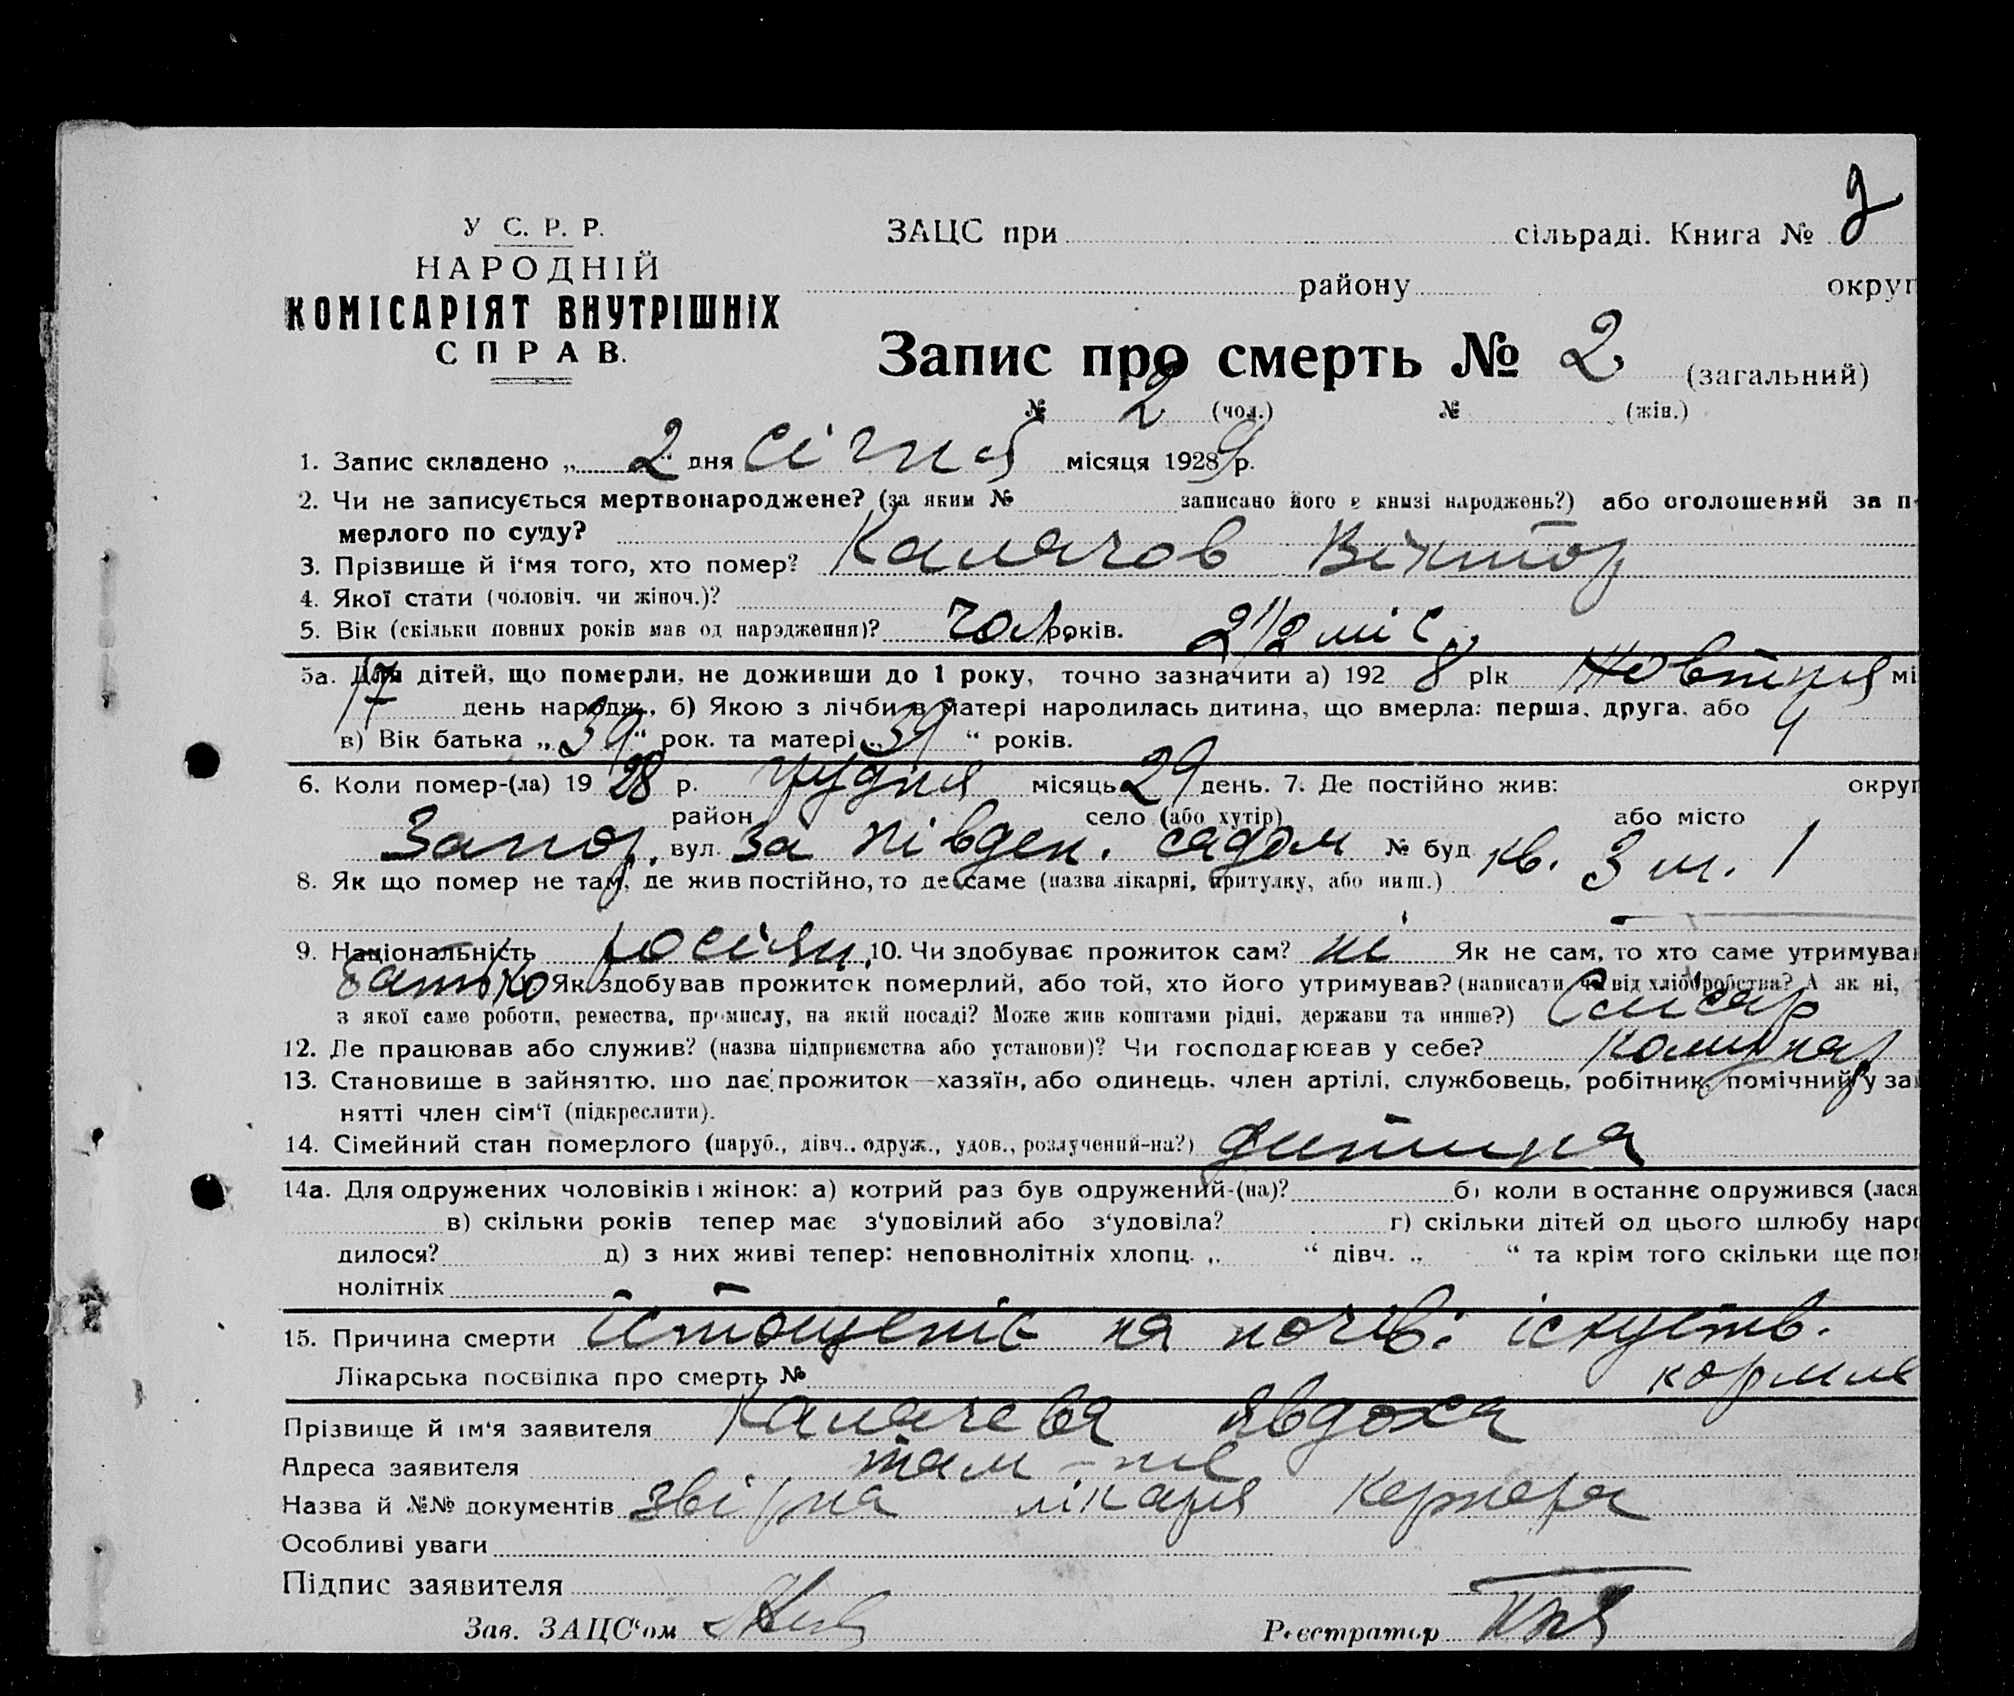 У С. Р. Р.
НАРОДНІЙ
КОМІСАРІЯТ ВНУТРІШНІХ
СПРАВ.
ЗАЦС при сільраді. Книга №
району округ
Запис про смерть № 2 (загальний)
№ 2 (чол.) № (жін.)
1. Запис складено „ 2 " дня січня місяця 1928 9 р.
2. Чи не записується мертвонароджене? (за яким № записано його в книзі народжень?) або оголошений за п
мерлого по суду?
3. Прізвище й і'мя того, хто помер? Калачов Віктор
4. Якої стати (чоловіч. чи жіноч.)?
5. Вік (скільки повних років мав од народження)? чол. років. 2 1/2 міс.
5а. Для дітей, що померли, не доживши до 1 року, точно зазначити а) 192 8 рік Жовтня мі
17 день народж., б) Якою з лічби в матері народилась дитина, що вмерла: перша, друга, або 4
в) Вік батька „ 39 " рок. та матері „ 39 " років.
6. Коли помер-(ла) 19 28 р. грудня місяць 29 день. 7. Де постійно жив: округ
район село (або хутір) або місто
Запор. вул. за півден. садом № буд кв. 3 ш. 1
8. Як що помер не там, де жив постійно, то де саме (назва лікарні, притулку, або инш.)
9. Національність росіян. 10. Чи здобуває прожиток сам? ні Як не сам, то хто саме утримува
батько Як здобував прожиток померлий, або той, хто його утримував? (написати чи від хліборобства? А як ні,
з якої саме роботи, ремества, промислу, на якій посаді? Може жив коштами рідні, держави та инше?) Слюсар
12. Де працював або служив? (назва підприємства або установи)? Чи господарював у себе? Комунар
13. Становище в зайняттю, що дає прожиток—хазяїн, або одинець, член артілі, службовець, робітник, помічний у за
нятті член сім'ї (підкреслити).
14. Сімейний стан померлого (паруб., дівч., одруж., удов., розлучений-на?) дитина
14а. Для одружених чоловіків і жінок: а) котрий раз був одружений-(на)? б) коли востаннє одружився (лася
в) скільки років тепер має з'удовілий або з'удовіла? г) скільки дітей од цього шлюбу наро
дилося? д) з них живі тепер: неповнолітніх хлопц. „ " дівч. „ " та крім того скільки ще пов
нолітніх
15. Причина смерти істощеніє на почві іскуств.
Лікарська посвідка про смерть № кормле
Прізвище й ім'я заявителя Калачева Явдоха
Адреса заявителя там-же
Назва й №№ документів лікаря
Особливі уваги
Підпис заявителя
Зав. ЗАЦС'ом Реєстратор